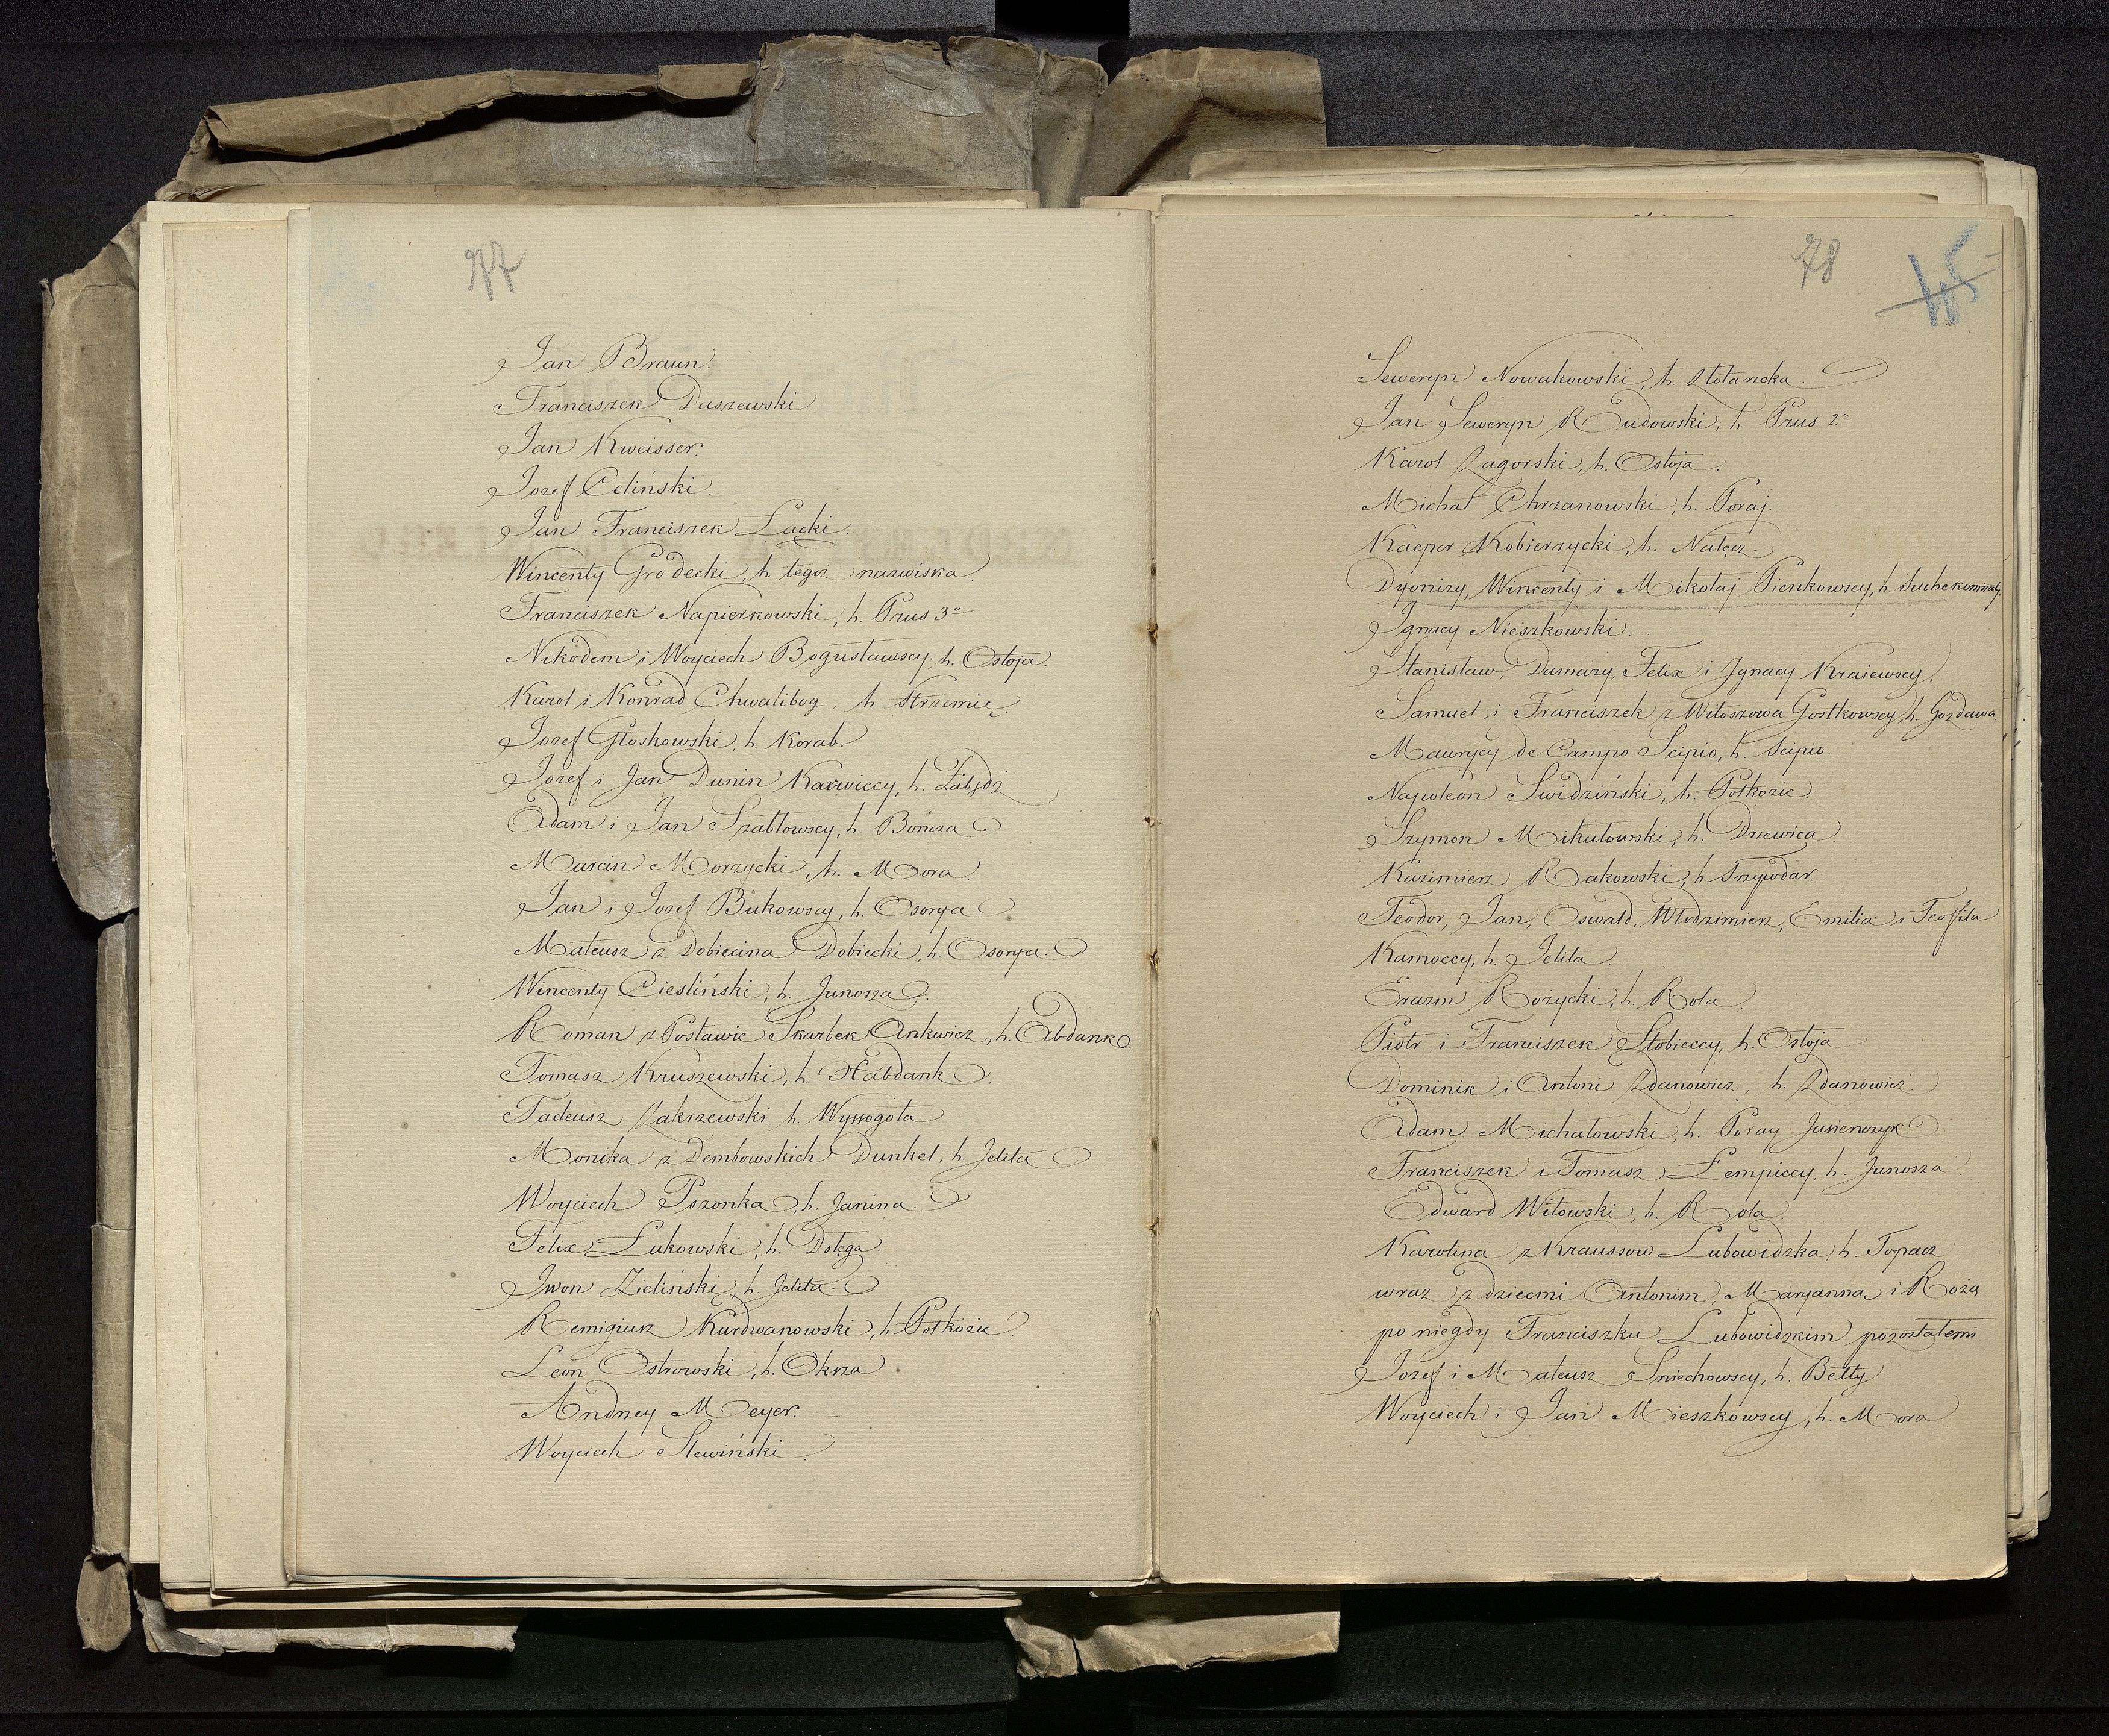 77
Jan Braun.
Franciszek Daszewski
Jan Kweisser.
Jozef Celiński.
Jan Franciszek Łącki.
Wincenty Grodecki, h. tegoż nazwiska.
Franciszek Napierkowski, h. Prus 3º
Nikodem i Woyciech Bogusławscy. h. Ostoja.
Karol i Konrad Chwalibog, h. Strzemię.
Jozef Głoskowski, h. Korab.
Jozef i Jan Dunin Karwiccy, h. Łabędź
Adam i Jan Szabłowscy, h. Bończa
Marcin Morzycki, h. Mora.
Jan i Jozef Bukowscy, h. Osorya
Mateusz z Dobiecina Dobiecki, h. Osorya.
Wincenty Ciesliński, h. Junosza.
Roman z Posławic Skarbek Ankwicz, h. Abdank
Tomasz Kruszewski, h. Habdank.
Tadeusz Zakrzewski h. Wyssogota
Monika z Dembowskich Dunkel, h. Jelita
Woyciech Pszonka, h. Janina.
Felix Łukowski, h. Dołęga.
Jwon Zieliński, h. Jelita.
Remigiusz Kurdwanowski, h. Połkozic.
Leon Ostrowski, h. Oksza.
Andrzey Meyer.
Woyciech Slewiński.
78
45
Seweryn Nowakowski, h. Złotarzeka.
Jan Seweryn Rudowski, h. Prus 2º
Karol Zagorski, h. Ostoja.
Michał Chrzanowski, h. Poraj.
Kacper Kobierzycki, h. Nałęcz.
Dyonizy, Wincenty i Mikołaj Pienkowscy, h. Suchekomnaty.
Jgnacy Nieszkowski.
Stanisław, Damazy, Felix i Jgnacy Kraiewscy.
Samuel i Franciszek z Witoszowa Gostkowscy, h. Gozdawa
Maurycy de Campo Scipio, h. Scipio.
Napoleon Swidziński, h. Połkozic.
Szymon Mikułowski, h. Drzewica.
Kazimierz Rakowski, h. Trzywdar.
Teodor, Jan, Oswald, Włodzimierz, Emilia i Teofila
Kamoccy, h. Jelita.
Erazm Rożycki, h. Rola
Piotr i Franciszek Słobieccy, h. Ostoja
Dominik i Antoni Zdanowicz, h. Zdanowicz
Adam Michałowski, h. Poray Jasienczyk
Franciszek i Tomasz Łempiccy, h. Junosza
Edward Witowski, h. Rola.
Karolina z Kraussow Lubowidzka, h. Topacz
wraz z dziecmi Antonim, Maryanną i Rożą
po niegdy Franciszku Lubowidzkim pozostałemi.
Jozef i Mateusz Sniechowscy, h. Bełty
Woyciech i Jan Mieszkowscy, h. Mora